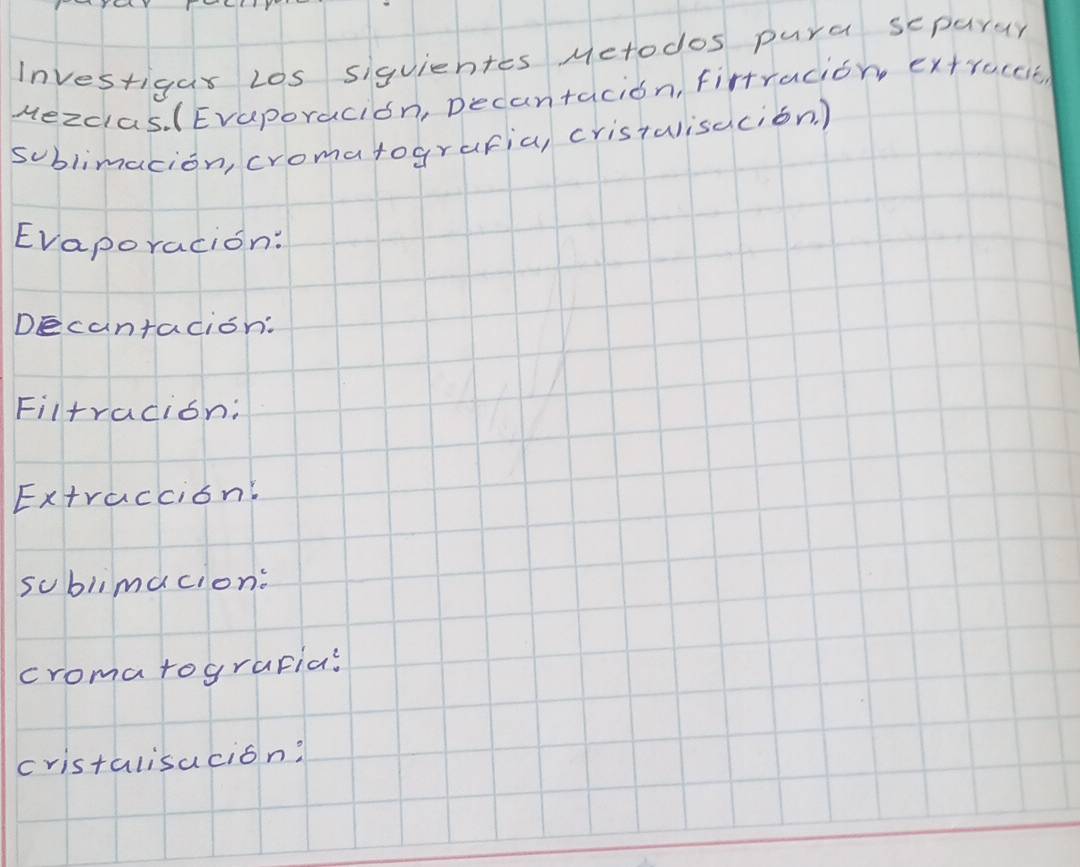 Investigar Los siguientes Metodos para separar
Mezclas.(Evaporación, Decantación, Firtración, extracción,
sublimación, cromatografia, cristalisación.)
Evaporación:
Decantación:
Filtración:
Extracción:
sublimacion:
cromatografia:
cristalisación: